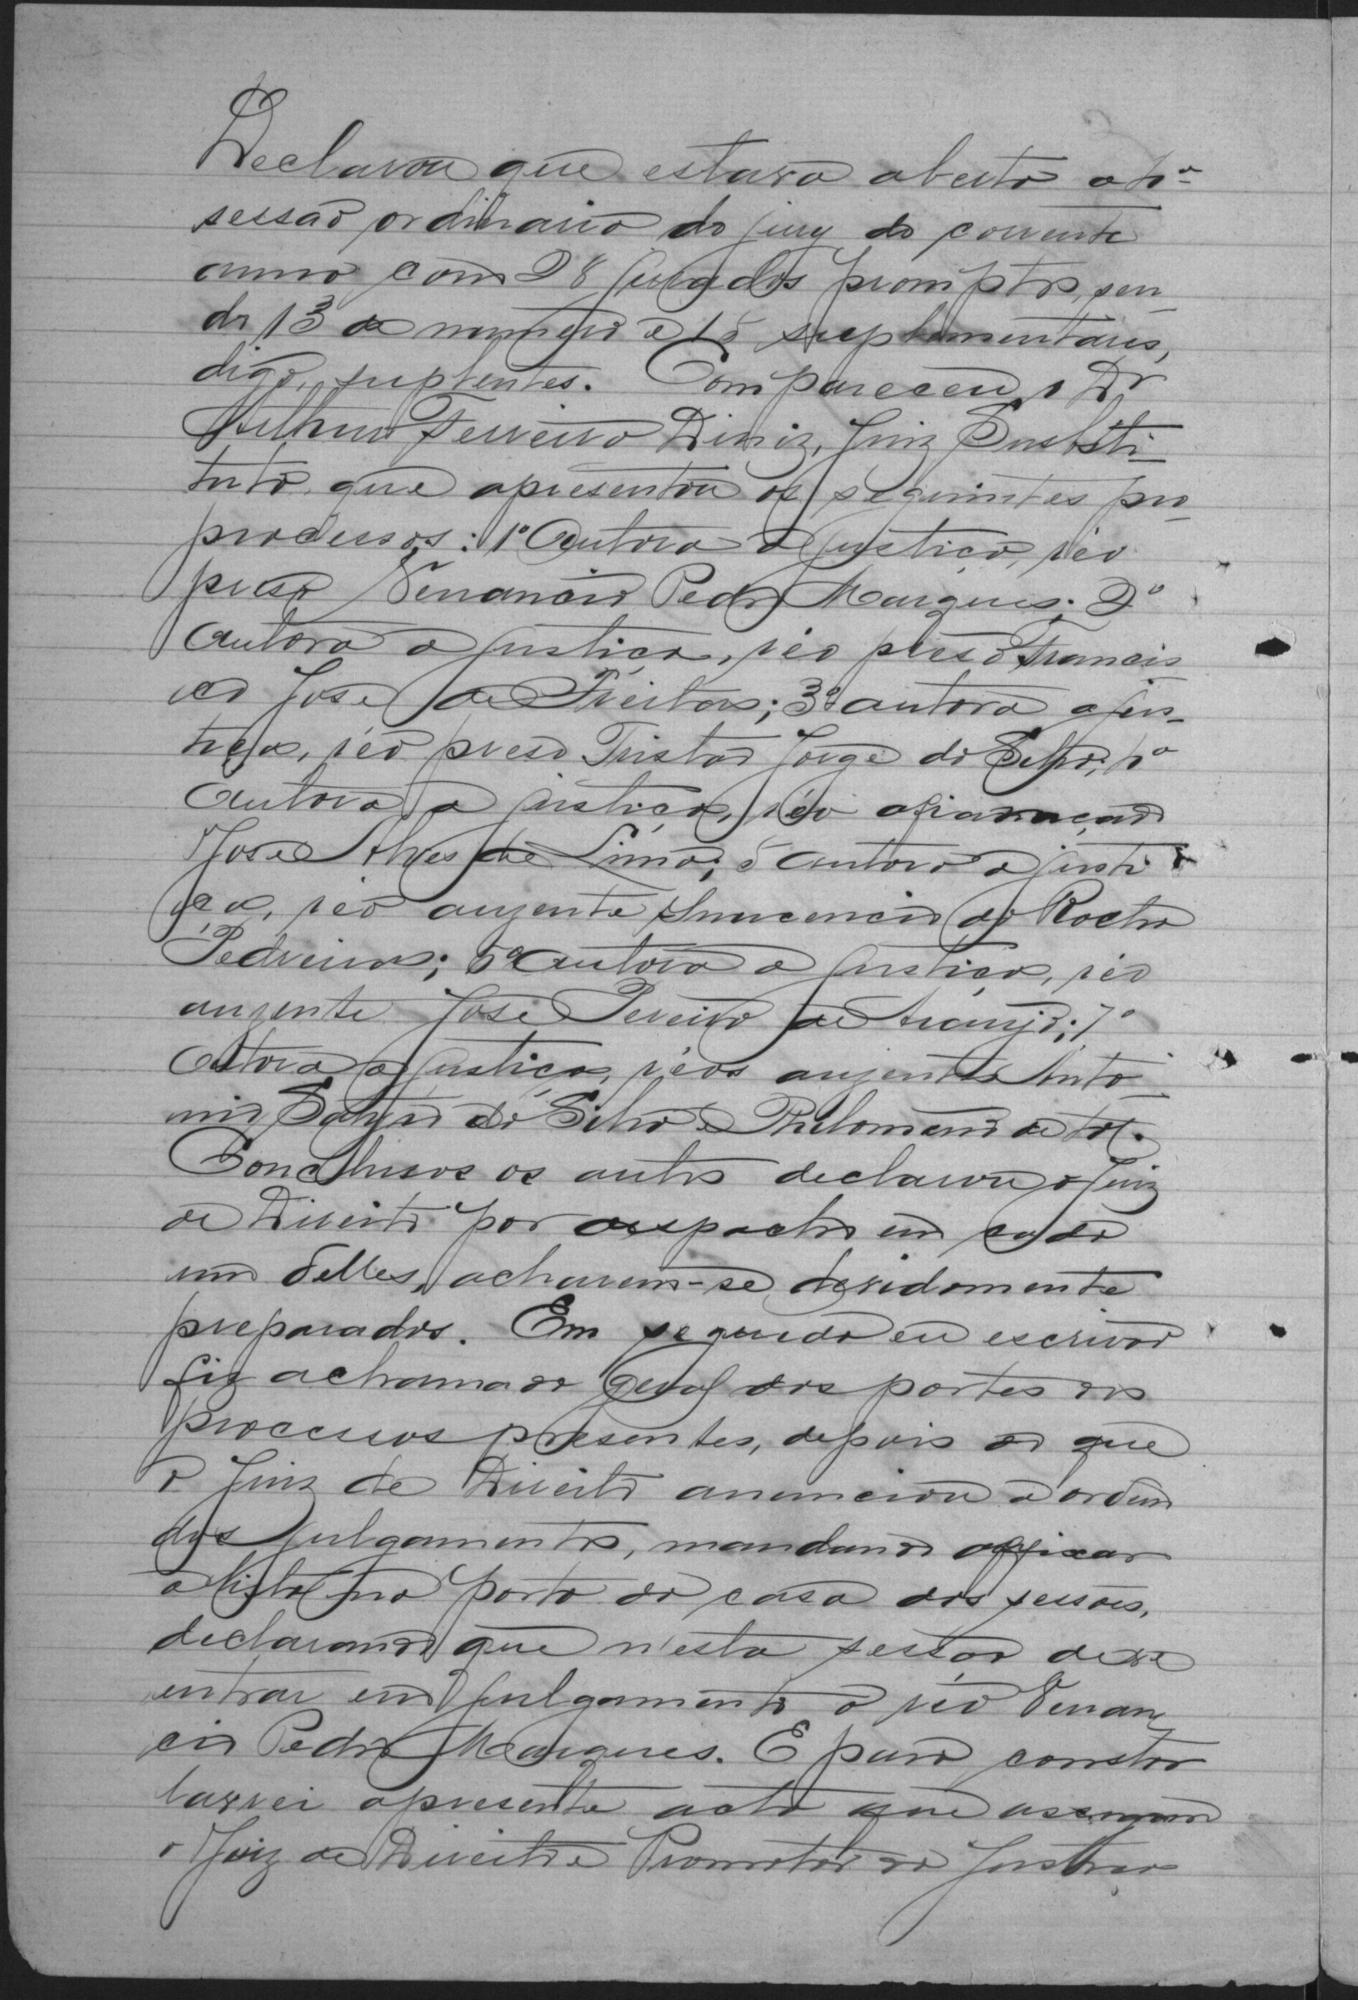 Declarou que estava aberta a 4ª
sessão ordinaria do jury do corrente
anno com 28 jurados promptos, sen-
do 13 de numero e 15 suplementares,
digo, suplentes. Compareceu o Dr
Arthur Ferreira Diniz, Juiz Substi-
tuto, que apresentou os seguintes pro-
processos: 1º Autora a justiça, réo
preso Venancio Pedro Marques; 2º
autora a justiça, réo preso Francis
co José de Freitas; 3º autora a jus-
tiça, réo preso Tristão Jorge da Silva; 4º
Autora a justiça, réo afiançado
José Alves de Lima; 5 autora a justi
ça, réo auzente Innocencio da Rocha
Pedreira; 6º autora a justiça, réo
auzente José Pereira de Araujo; 7º
Autora a justiça, réos auzentes Anto-
nio da Silva e Philomena de tal.
Conclusos os autos declarou o Juiz
de Direito por despacho em cada
um delles, acharem-se devidamente
preparados. Em seguida eu escrivão
fiz a chamada geral das partes dos
processos presentes, depois do que
o Juiz de Direito anunciou a ordem
dos julgamentos, mandando affixar
a lista na porta da casa das sessões,
declarando que n'esta sessão deve
entrar em julgamento o réo Venan
cio Pedro Marques. E para constar
lavrei apresente acta que assignam
o Juiz de Direito e Promotor da Justiça